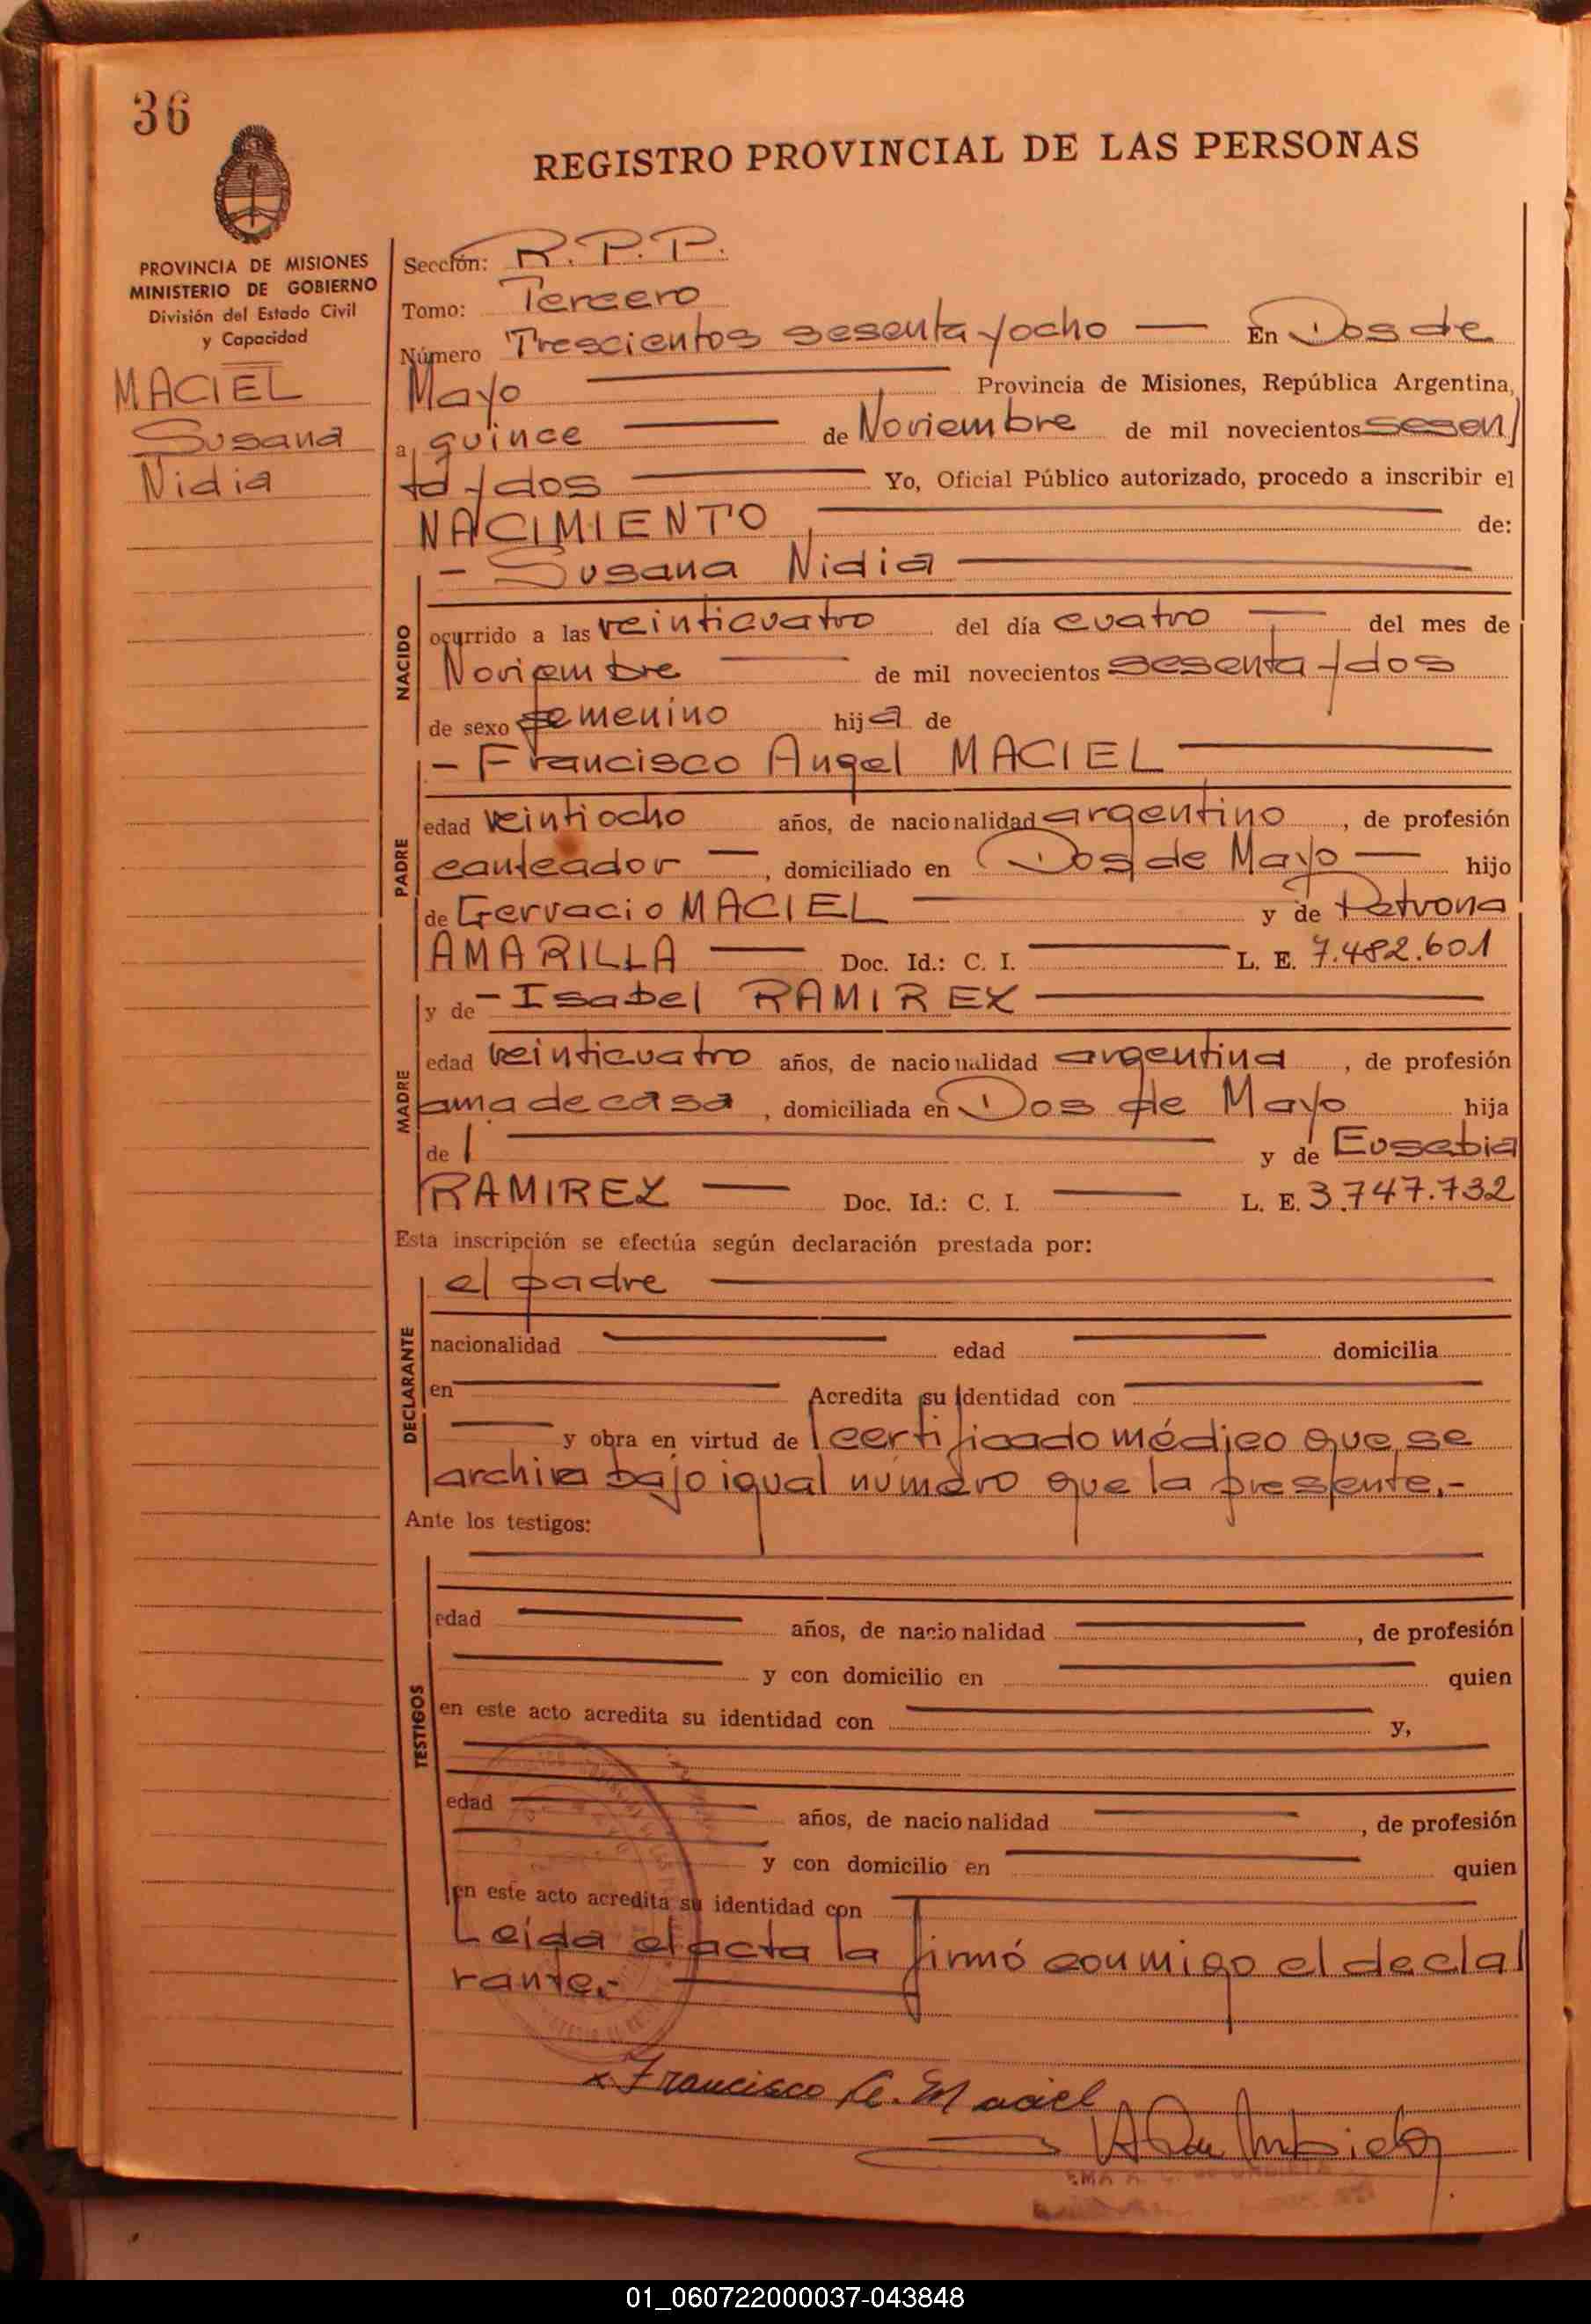 36
REGISTRO PROVINCIAL DE LAS PERSONAS
PROVINCIA DE MISIONES
MINISTERIO DE GOBIERNO
División del Estado Civil
y Capacidad
MACIEL
Susana
Nidia
Sección: R.P.P.
Tomo: Tercero
Número Trescientos sesenta y ocho — En Dos de
Mayo — Provincia de Misiones, República Argentina,
a quince — de Noviembre de mil novecientos sesen/
ta y dos — Yo, Oficial Público autorizado, procedo a inscribir el
NACIMIENTO — de:
NACIDO
- Susana Nidia —
ocurrido a las veinticuatro del día cuatro — del mes de
Noviembre — de mil novecientos sesenta y dos
de sexo femenino hija de
PADRE
- Francisco Angel MACIEL —
edad veintiocho años, de nacionalidad argentino, de profesión
canteador —, domiciliado en Dos de Mayo — hijo
de Gervacio MACIEL — y de Petrona
AMARILLA — Doc. Id.: C. I. — L. E. 7.482.601
MADRE
y de - Isabel RAMIREZ —
edad veinticuatro años, de nacionalidad argentina, de profesión
ama de casa, domiciliada en Dos de Mayo hija
de / — y de Eusebia
RAMIREZ — Doc. Id.: C. I. — L. E. 3.747.732
Esta inscripción se efectúa según declaración prestada por:
DECLARANTE
el padre —
nacionalidad — edad — domicilia
en — Acredita su identidad con —
— y obra en virtud de certificado médico que se
archiva bajo igual número que la presente.-
Ante los testigos:
TESTIGOS
edad — años, de nacionalidad —, de profesión
— y con domicilio en — quien
en este acto acredita su identidad con — y,
edad — años, de nacionalidad —, de profesión
— y con domicilio en — quien
en este acto acredita su identidad con —
Leída el acta la firmó conmigo el decla/
rante.- —
x Francisco A. Maciel
01_060722000037-043848